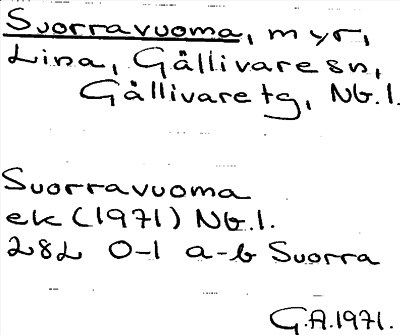 Suorravuoma, myr,
Lina, Gällivare sn,
Gällivare tg, Nb.l.
Suorravuoma
ek (1971) Nb.l.
28L 0-1 a-b Suorra
G.A.1971.